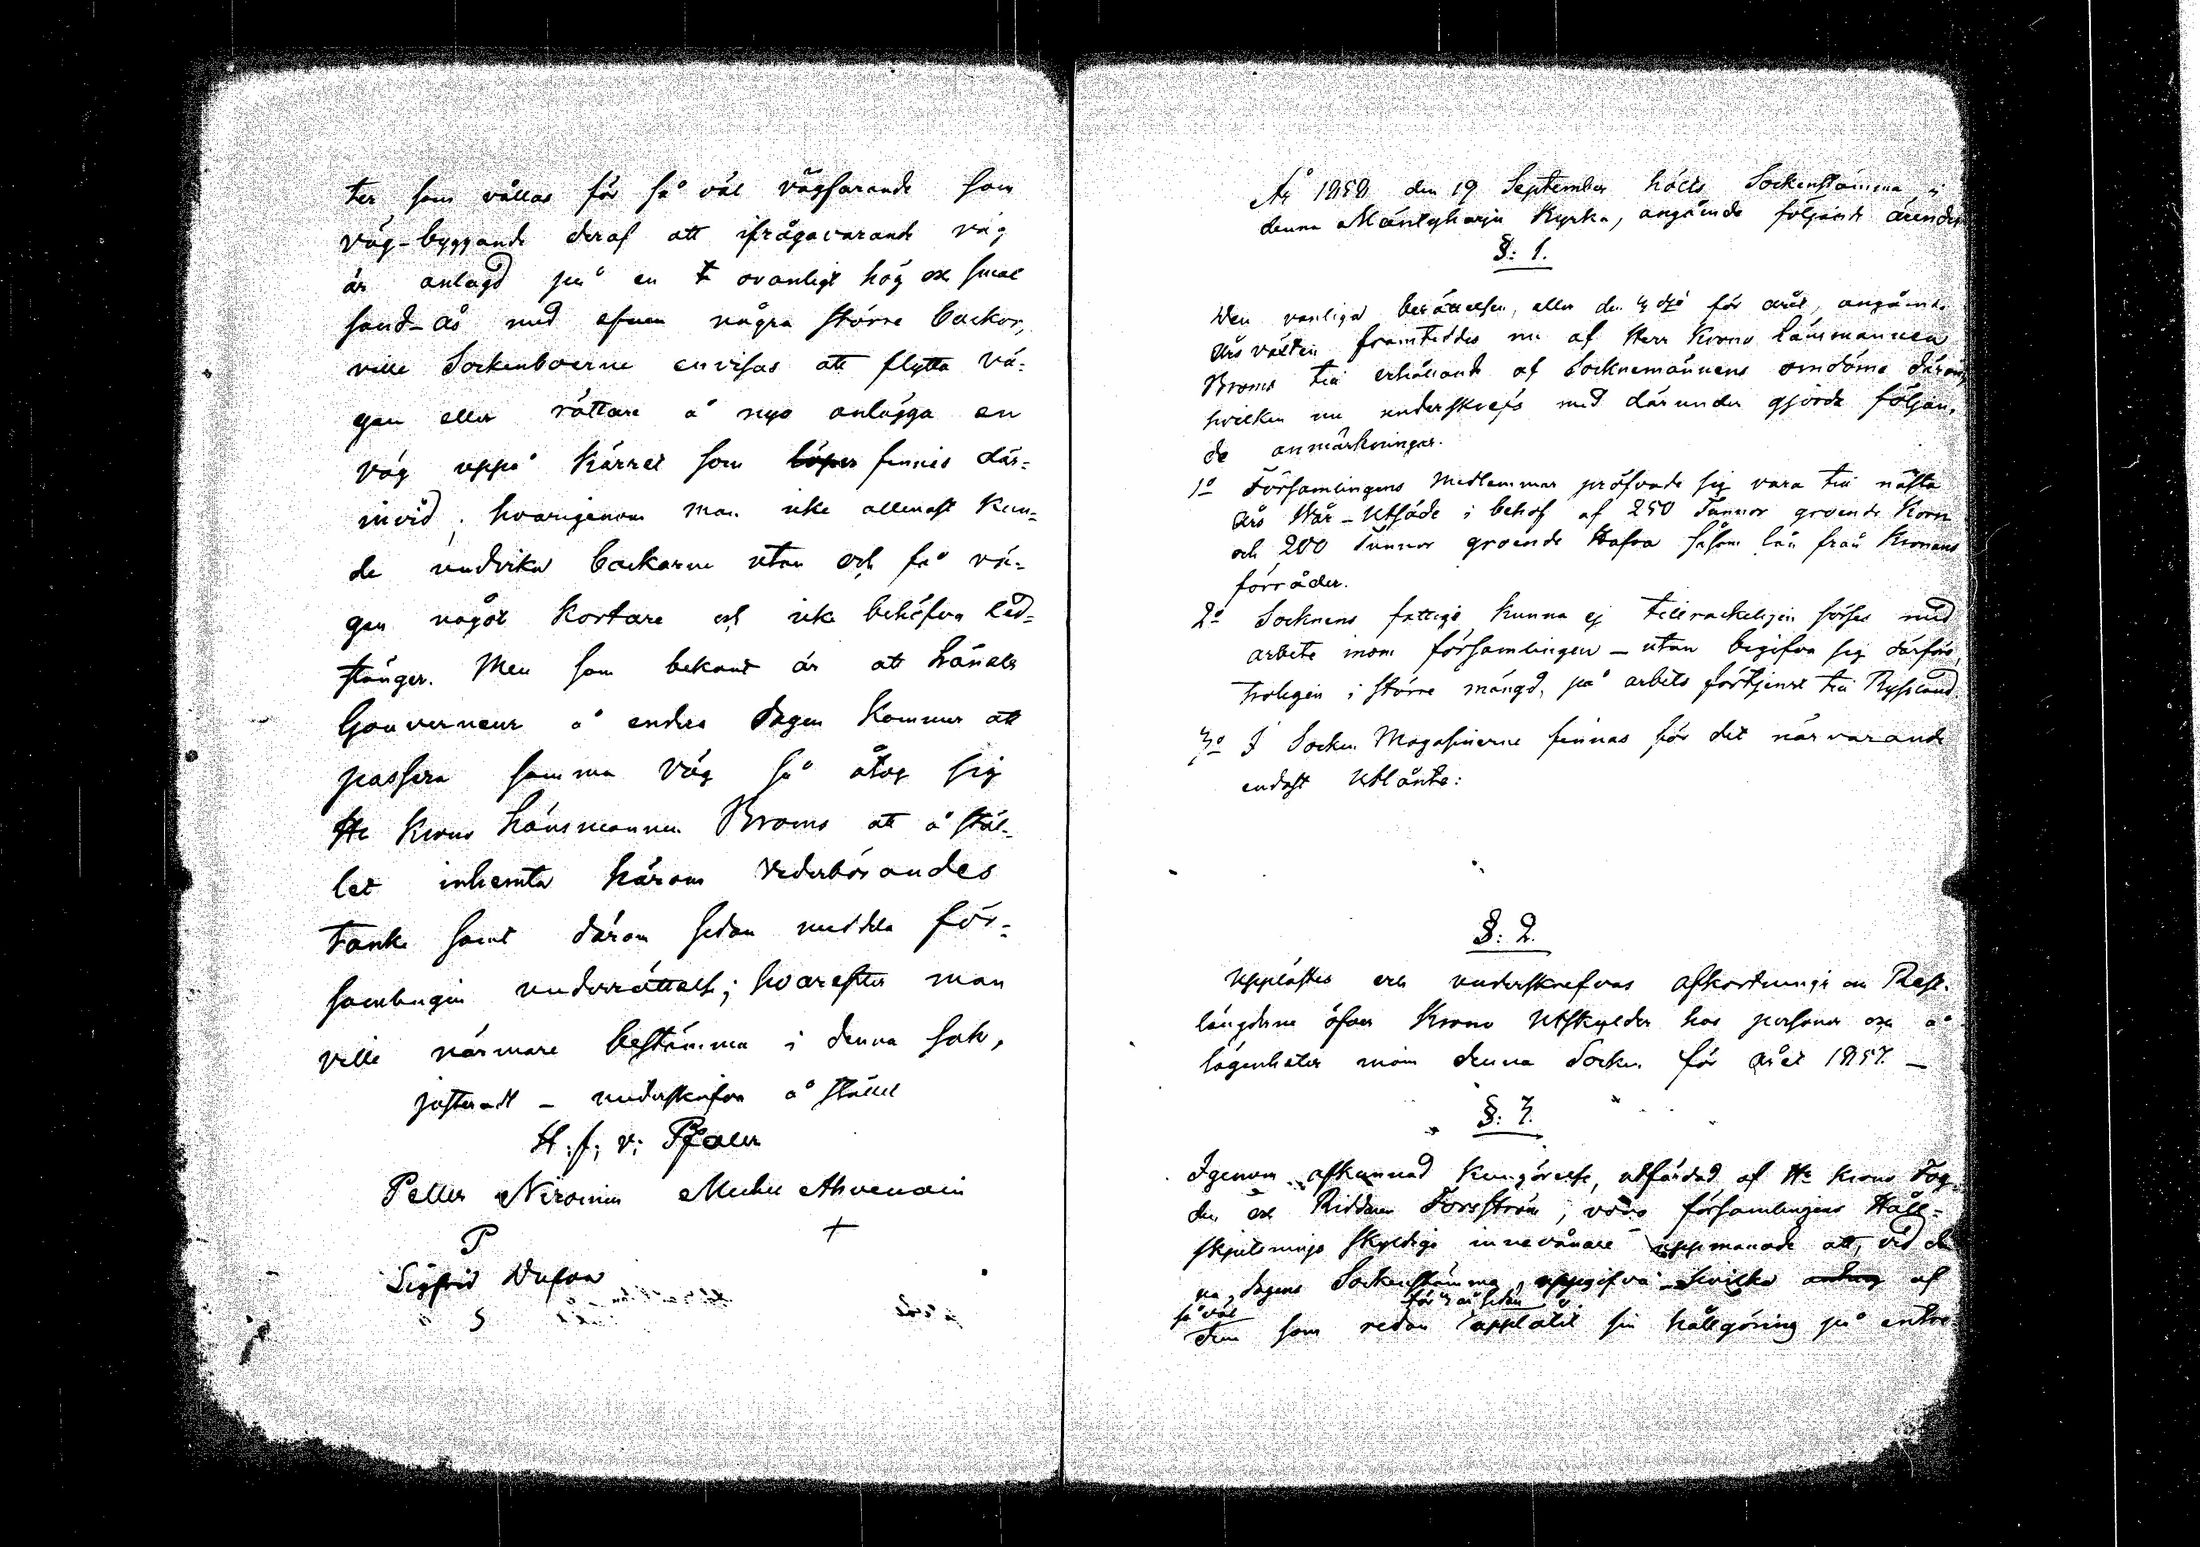 ter som vållas för så väl vägfarande som
väg-byggande deraf att ifrågavarande väg
är anlagd på en ovanligt hög och smal
sand-ås med några större backor,
ville Sockenboerne envisas att flytta vä=
gen eller rättare å nyo anlägga en
väg uppå Kärret som löper finnes där=
invid, hvarigenom man icke allenast kun=
de undvika backarne utan och få vä=
gen något kortare och icke behöfva led=
stänger. Men som bekant är att Länets
Gouverneur å endera dagen kommer att
passera samma väg så åtog sig
Hr Krono Länsmannen Broms att å stäl=
let inhemta härom vederbörandes
tanke samt därom sedan meddela för=
samlingen underrättelse; hvarefter man
ville närmare bestämma i denna sak,
justeradt – underskrifva å stället
H. f. v. Pfaler
Petter Niroinen Michel Ahvenain
P +
Sigfrid Nufva
S
År 1858 den 19 September hölts Sockenstämma i
denna Mäntyharju Kyrka, angående följande ärenden
§: 1.
Den vanliga berättelsen, eller den 3dje för året, angående
årsväxten framteddes nu af Herr Krono länsmannen
Broms till erhållande af Socknemännens omdöme därom,
hvilken nu underskrefs med därunder gjorde följan,
de anmärkningar.
1o Församlingens Medlemmar pröfvade sig vara till nästa
års Wår-Utsäde i behof af 250 Tunnor groende Korn
och 200 Tunnor groende Hafra såsom lån från Kronans
förråder.
2o Socknens fattige kunna ej tillräckeligen förses med
arbete inom församlingen – utan begifva sig därföre
troligen i större mängd, på arbets förtjenst till Ryssland.
3o I Socken Magasinerne finnas för det närvarande
endast Utlånte:
§: 2.
Upplästes och underskrefvos afkortnings och Rest.
längderne öfver Krono Utskylder hos personer och å
lägenheter inom denna Socken för året 1857. –
§: 3.
Igenom afkunnad Kungörelse, utfärdad af Hr Krono Fog=
den och Riddaren Forsström, voro församlingens Håll=
skjutsnings skyldige innevånare uppmanade att, vid de
na dagens Sockenstämma, uppgifva hvilka anting af
så väl för 3 år sedan
dem som redan upplåtit sin hållgöring på entre